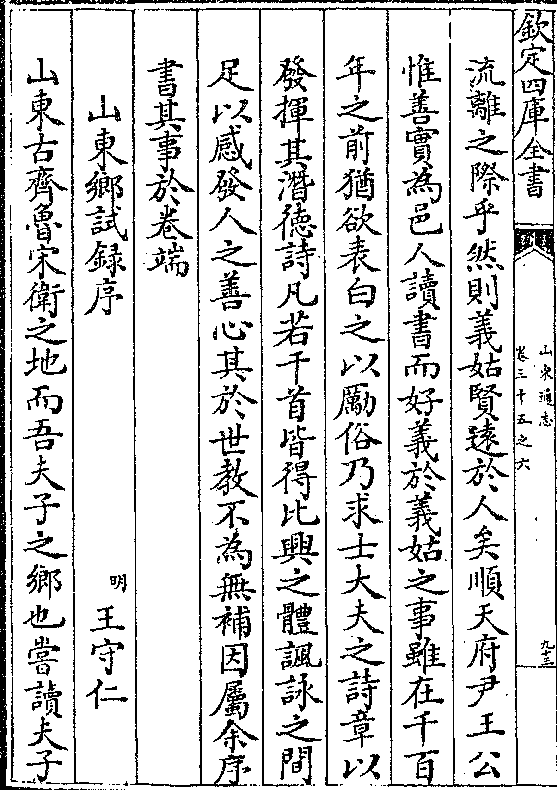 欽定四庫全書
山東通志
卷三十五之六
九十三
流離之際乎然則義姑賢遠於人矣順天府尹王公
惟善實為邑人讀書而好義於義姑之事雖在千百
年之前猶欲表白之以勵俗乃求士大夫之詩章以
發揮其潛徳詩凡若干首皆得比興之體諷詠之間
足以感發人之善心其於世教不為無補因屬余序
書其事於卷端
山東鄉試録序
明 王守仁
山東古齊魯宋衛之地而吾夫子之鄉也嘗讀夫子